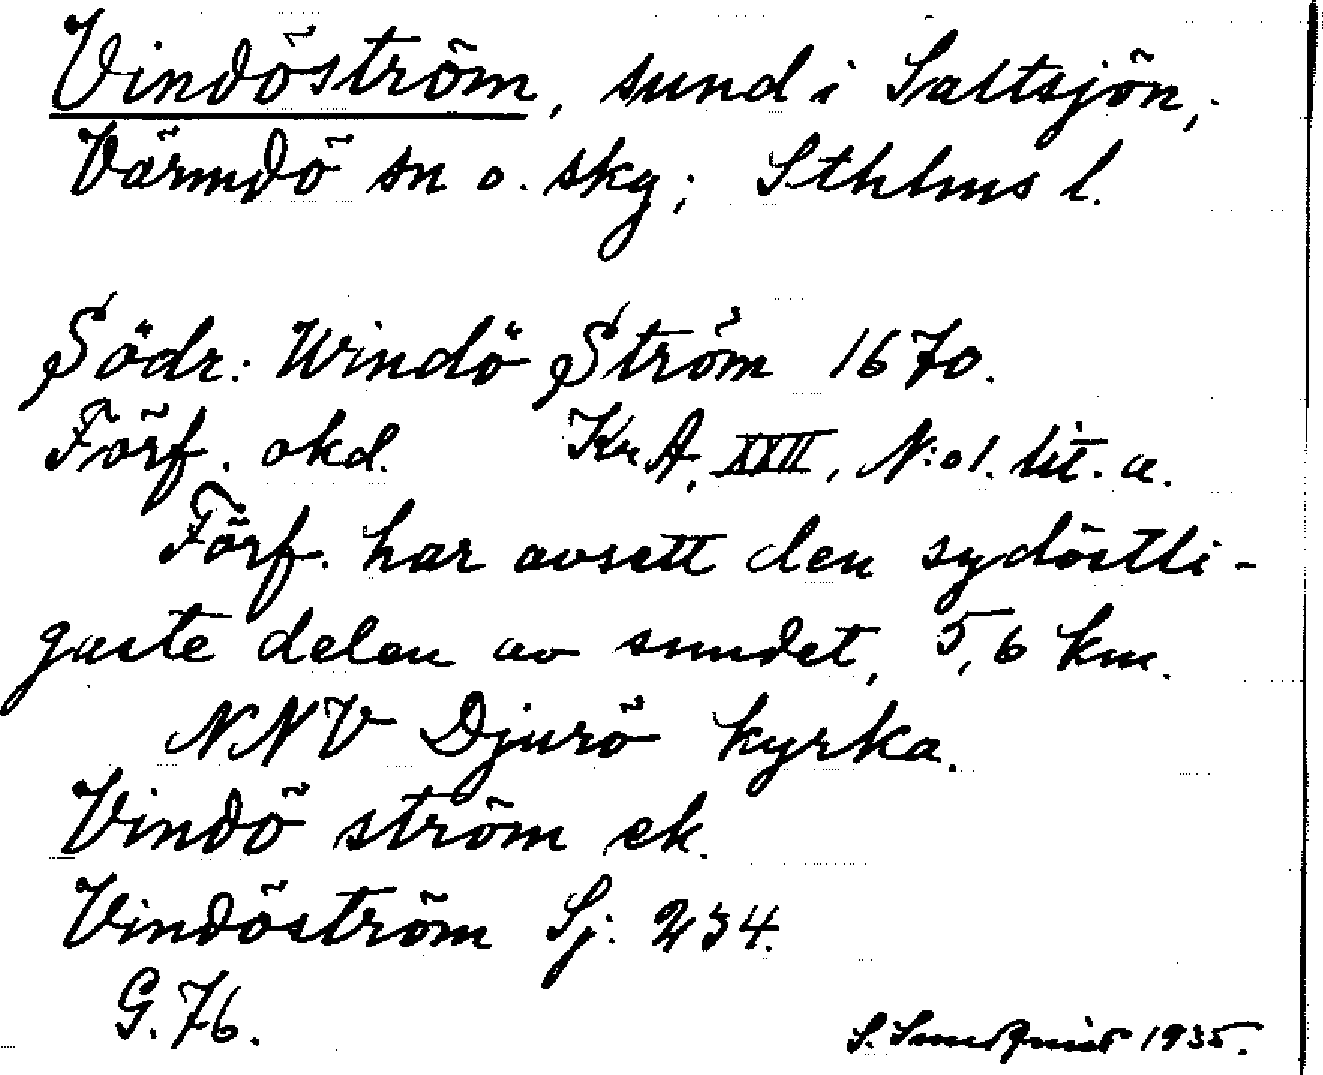 Vindöström, sund i Saltsjön,
Värmdö sn o. skg; Sthlms l.
Södr: Windö Ström 1670.
Förf. okd. Kr. A, XXII, N:o 1. lit. a.
Förf. har avsett den sydöstli-
gaste delen av sundet, 5,6 km.
NNV Djurö kyrka.
Vindö ström ek.
Vindöström Sj. 234.
G. 76.
S. Sundquist 1935.